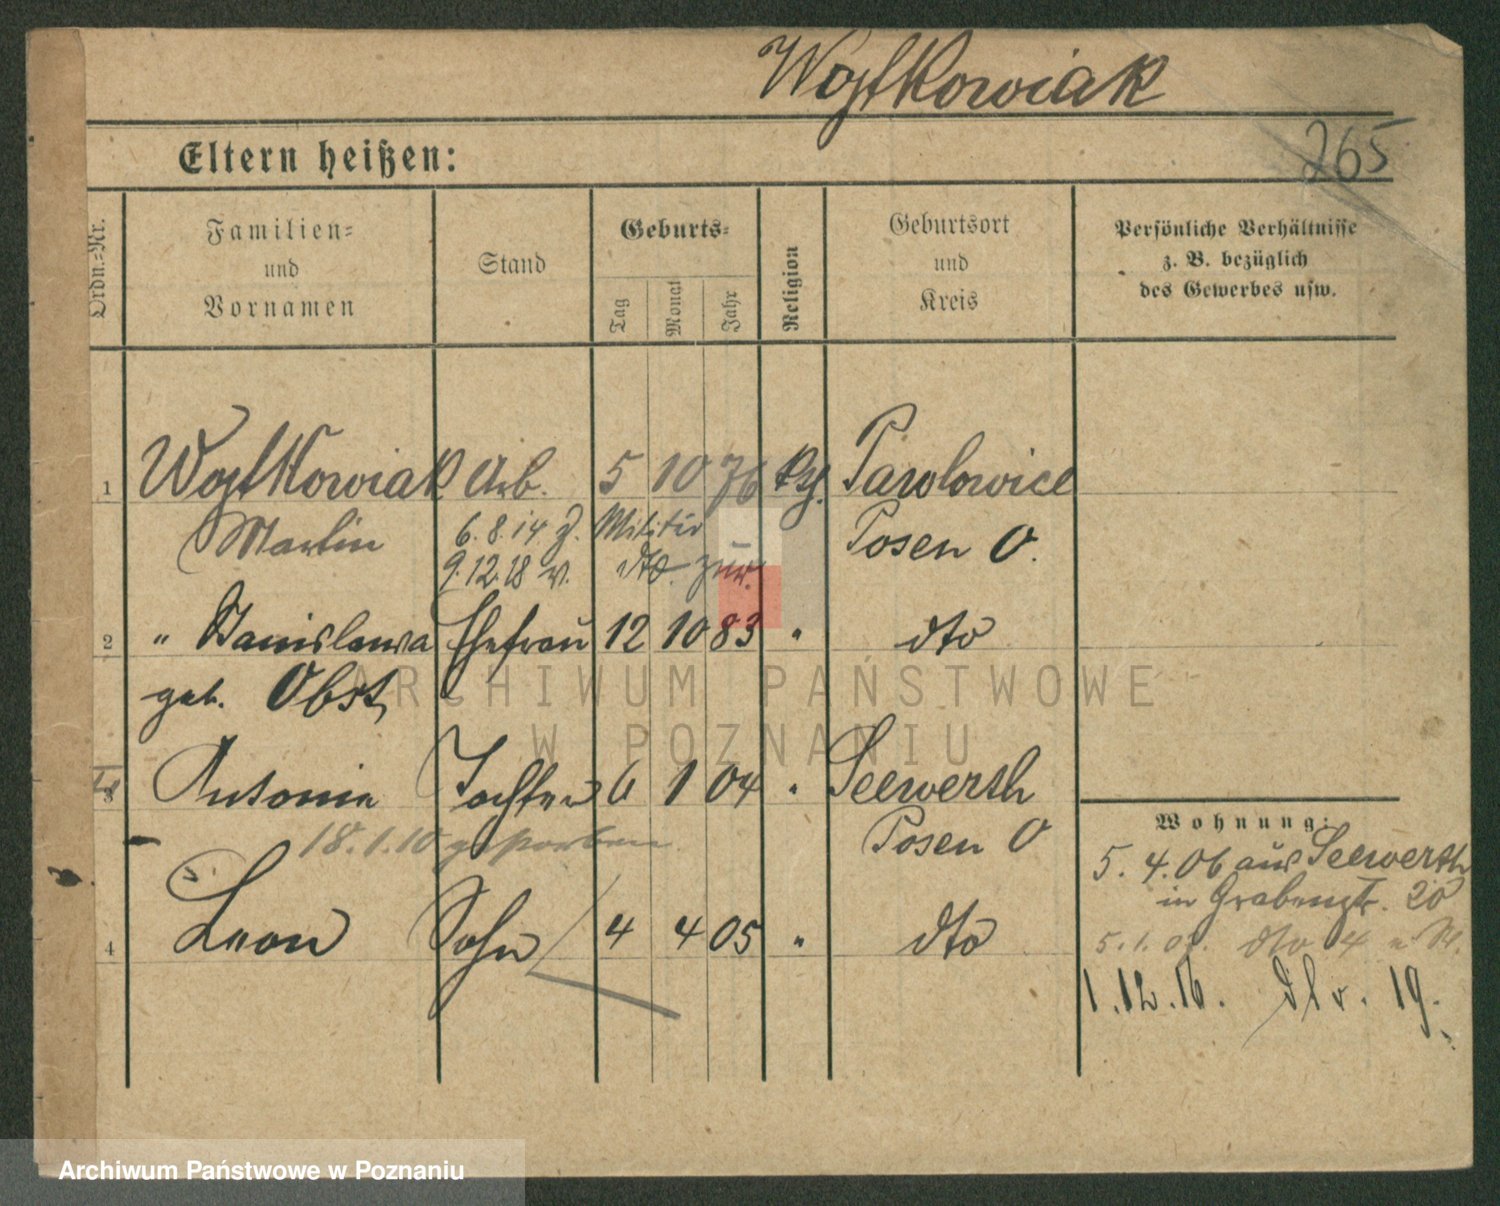 Wojtkowiak
265
Eltern heißen:
Ordn.-Nr.
Familien-
und
Vornamen
Stand
Geburts-
Tag
Monat
Jahr
Religion
Geburtsort
und
Kreis
Persönliche Verhältnisse
z. B. bezüglich
des Gewerbes usw.
1 Wojtkowiak Arb. 5 10 76 kth. Pawlowice
Martin 6.8.14 z. Militär Posen O.
9.12.18 v. dto. zur.
2 " Stanislawa Ehefrau 12 10 83 " dto
geb. Obst
ARCHIWUM PAŃSTWOWE
W POZNANIU
3 Antonie Tochter 6 1 04 " Seewerth
18.1.10 gestorben Posen O
4 Leon Sohn 4 4 05 " dto
Wohnung:
5. 4. 06 aus Seewerth
in Grabenstr. 20
5. 1. dto 4
1. 12. 16. 19.
Archiwum Państwowe w Poznaniu